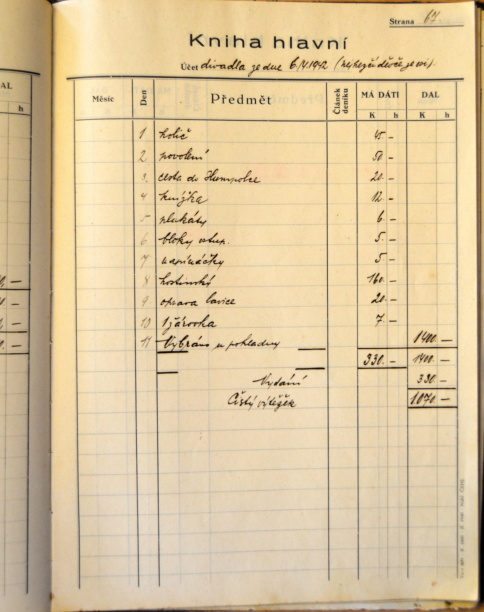 Strana 67
Kniha hlavní
Účet divadla ze dne 6/V.1942 (nejhezčí děvče ze vsi).
DAL
h
Měsíc Den Předmět Článek deníku MÁ DÁTI DAL
K h K h
1 holič 45 -
2 povolení 50 -
3. cesta do Humpolce 20. -
4 knížka 12. -
5 plakáty 6. -
6 bloky vstup. 5. -
7 napínáčky 5 -
8 hostinský 160. -
9 oprava lavice 20. -
10 1 žárovka 7. -
11 Vybráno u pokladny 1400 -
330. - 1400 -
Vydání 330 -
Čistý výtěžek 1070 -